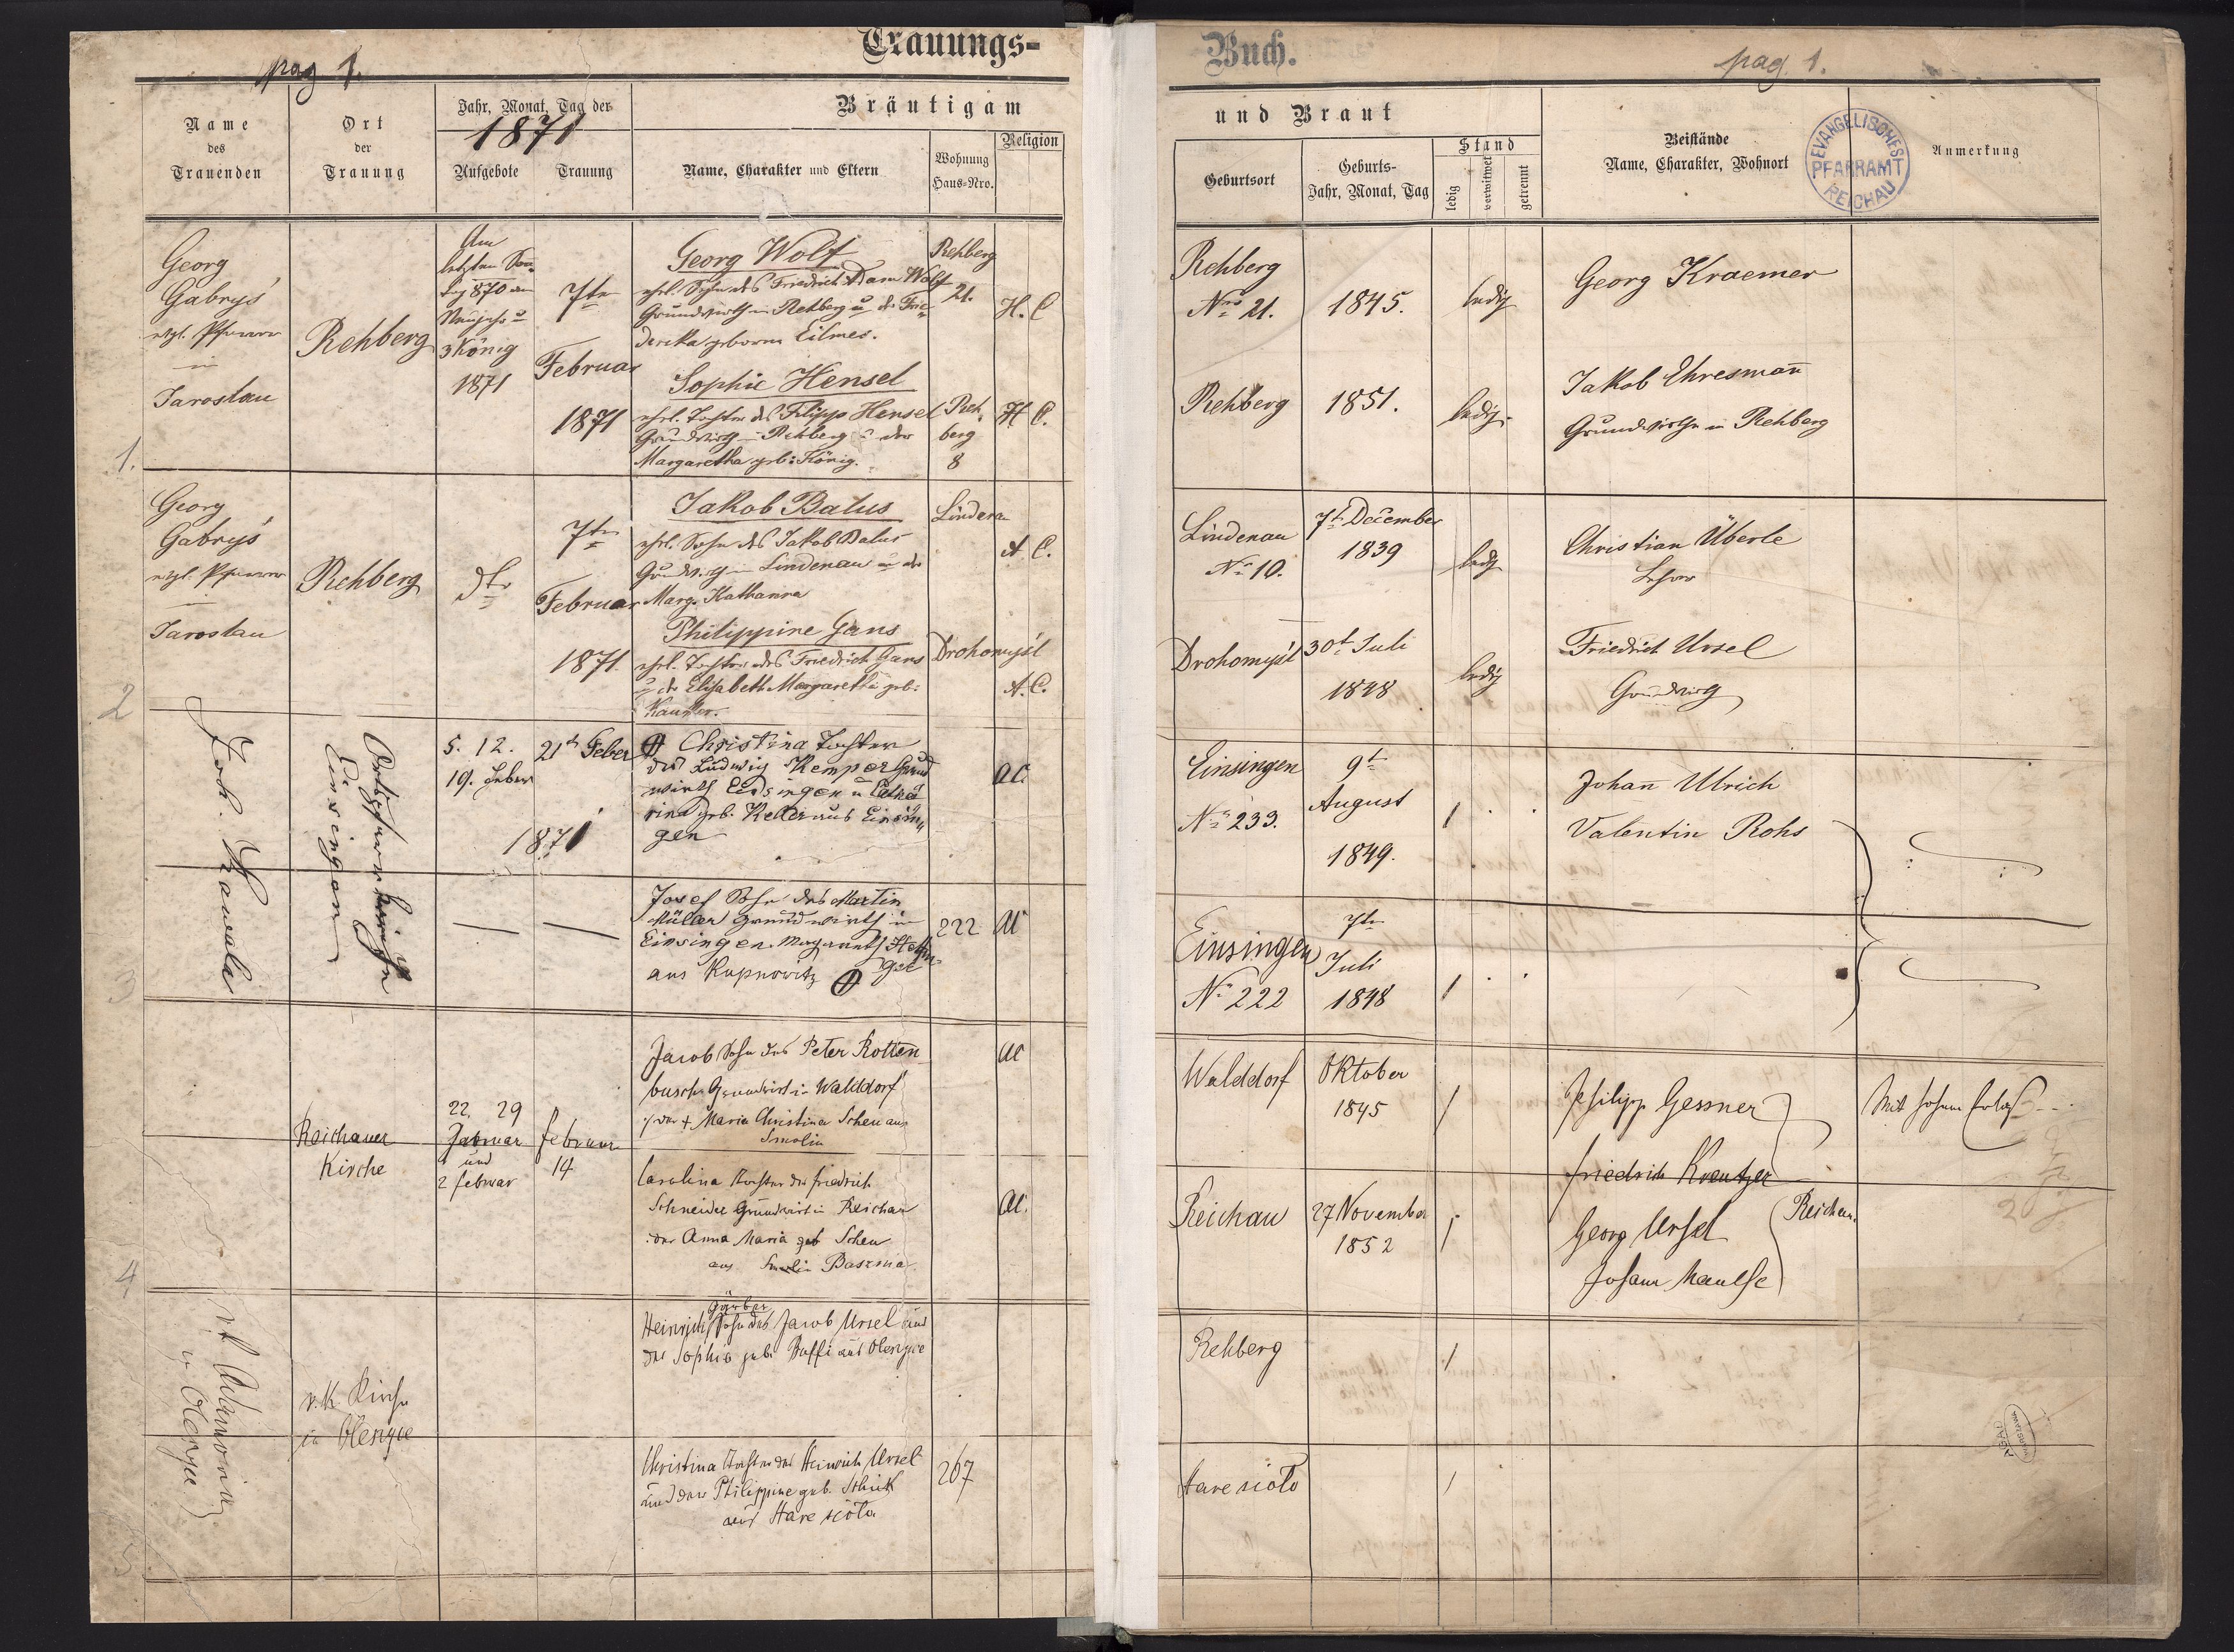 Trauungs-
pag 1.
Name
des
Trauenden
Ort
der
Trauung
Jahr, Monat, Tag der
1871
Aufgebote
Trauung
Bräutigam
Name, Charakter und Eltern
Wohnung
Haus-Nro.
Religion
1.
Georg
Gabryś
evgl. Pfarrer
in
Jaroslau
Rehberg
Am
letzten Son-
tag 870 am
Neujahr u
3 König
1871
7ten
Februar
1871
Georg Wolf
ehel. Sohn des Friedrich Adam Wolf
Grundwirth in Rehberg u der Frie-
derika geborne Eilmes.
Rehberg
21.
H. C
Sophie Hensel
ehrl. Tochter des Filipp Hensel
Grundwirth in Rehberg u der
Margaretha geb: König.
Reh-
berg
8
H C.
2
Georg
Gabryś
evgl. Pfarrer
in
Jaroslau
Rehberg
dto
7ten
Februar
1871.
Jakob Balus
ehrl. Sohn des Jakob Balus
Grundw. in Lindenau u der
Marg. Katharina
Lindena
A. C.
Philippine Gans
ehrl. Tochter des Friedrich Gans
u der Elisabeth Margaretha geb:
Drohomyśl
A. C.
3
Joh. Krawala
Ortspfarrkirche
Einsingen
5. 12.
19. Feber
21t Feber
1871
Christina Tochter
des Ludwig Kemper Grund
wirth Einsingen u Catha
rina geb. Keller aus Einsin
gen
AC.
Josef Sohn des Martin
Müller Grundwirth in
Einsingen. Margareth
aus Kupnowitz
222
AC
4
Reichauer
Kirche
22. 29
Januar
und
2 Februar
Februar
14
Jacob Sohn des Peter Rotten
busch Grundwirt in Walddorf
der + Maria Christina Scheu aus
Smolin
AC
Carolina Tochter des Friedrich
Schneider Grundwirt in Reichau
der Anna Maria geb Scheu
aus Smolin
AC.
5
in Oleszyce
r. k. Kirche
in Oleszyce
Gärber
Heinrich Sohn des Jacob Ursel und
der Sophie geb. aus Oleszyce
Christina Tochter des Heinrich Ursel
und der Philippine geb. Schick
aus Stare sioło
267
Buch.
pag 1.
und Braut
Geburtsort
Geburts-
Jahr, Monat, Tag
Stand
ledig
verwitwet
getrennt
Beistände
Name, Charakter, Wohnort
EVANGELISCHES
PFARRAMT
REICHAU
Anmerkung
Rehberg
Nro 21.
1845.
ledig
Georg Kraemer
Rehberg
1851.
ledig.
Jakob Ehresmañ
Grundwirthe in Rehberg
Lindenau
No 10.
7t December
1839
ledig
Christian Überle
Lehrer
Drohomyśl
30t Juli
1848
ledig
Friedrich Ursel
Grundwirth
Einsingen
No 233.
9t
August
1849.
Johañ Ulrich
Valentin Rohs
Einsingen
No 222
7ten
Juli
1848
Walddorf
Oktober
1845
Philipp Gessner
Friedrich Kreutzer
Mit hohem Erlaß
Reichau
27 November
1852
Georg Ursel
Reichau
Rehberg
Stare sioło